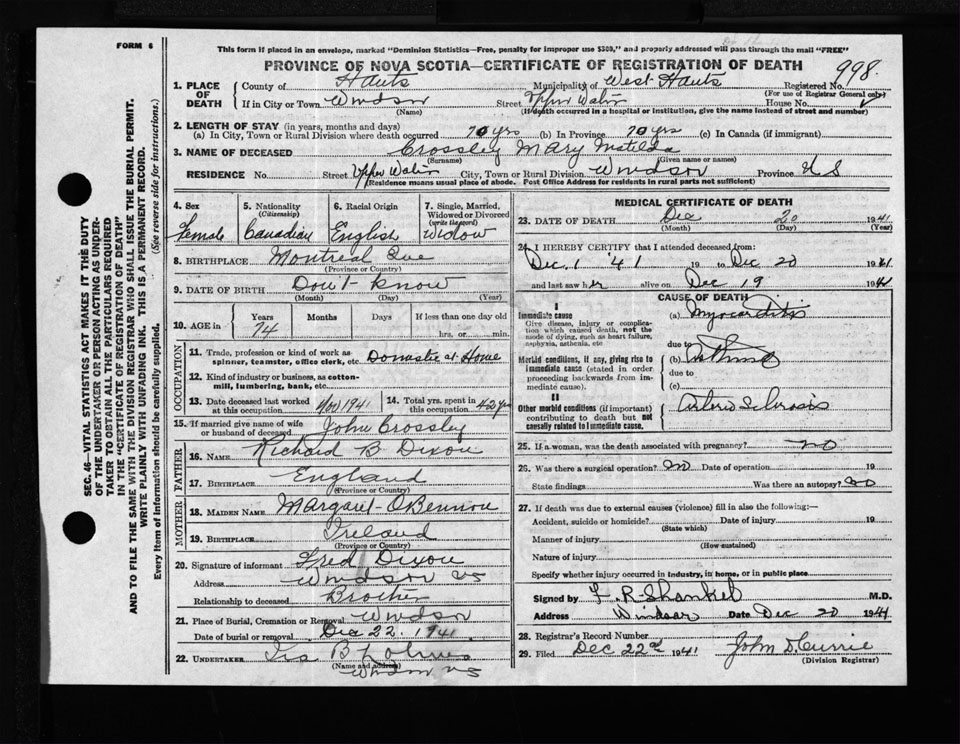 FORM 6
This form if placed in an envelope, marked "Dominion Statistics—Free, penalty for improper use $300," and properly addressed will pass through the mail "FREE"
PROVINCE OF NOVA SCOTIA—CERTIFICATE OF REGISTRATION OF DEATH
998.
1. PLACE OF DEATH
County of Hants Municipality of West Hants Registered No.
(For use of Registrar General only)
If in City or Town Windsor Street Upper Water House No.
(Name) (If death occurred in a hospital or institution, give the name instead of street and number)
2. LENGTH OF STAY (in years, months and days)
(a) In City, Town or Rural Division where death occurred 70 yrs (b) In Province 70 yrs (c) In Canada (if immigrant)
3. NAME OF DECEASED Crossley Mary Matilda
(Surname) (Given name or names)
RESIDENCE No. Street Upper Water City, Town or Rural Division Windsor Province N S
(Residence means usual place of abode. Post Office Address for residents in rural parts not sufficient)
4. Sex Female
5. Nationality (Citizenship) Canadian
6. Racial Origin English
7. Single, Married, Widowed or Divorced (write the word) Widow
8. BIRTHPLACE Montreal Que
(Province or Country)
9. DATE OF BIRTH Don't know
(Month) (Day) (Year)
10. AGE in Years 74 Months Days If less than one day old hrs. or min.
OCCUPATION
11. Trade, profession or kind of work as spinner, teamster, office clerk, etc. Domestic at Home
12. Kind of industry or business, as cotton-mill, lumbering, bank, etc.
13. Date deceased last worked at this occupation Nov 1941
14. Total yrs. spent in this occupation 42 yrs
15. If married give name of wife or husband of deceased John Crossley
FATHER
16. NAME Richard B Dixon
17. BIRTHPLACE England
(Province or Country)
MOTHER
18. MAIDEN NAME Margaret
19. BIRTHPLACE Ireland
(Province or Country)
20. Signature of informant Fred Dixon
Address Windsor NS
Relationship to deceased Brother
21. Place of Burial, Cremation or Removal Windsor
Date of burial or removal Dec 22. 1941
22. UNDERTAKER
(Name and address)
Windsor NS
MEDICAL CERTIFICATE OF DEATH
23. DATE OF DEATH Dec 20 1941
(Month) (Day) (Year)
24. I HEREBY CERTIFY that I attended deceased from:
Dec. 1 '41 19 to Dec 20 1941
and last saw her alive on Dec 19 1941
CAUSE OF DEATH
I
Immediate cause
Give disease, injury or complication which caused death, not the mode of dying, such as heart failure, asphyxia, asthenia, etc
(a) Myocarditis
due to
Morbid conditions, if any, giving rise to immediate cause (stated in order proceeding backwards from immediate cause).
(b) Asthma
due to
(c)
II
Other morbid conditions (if important) contributing to death but not causally related to immediate cause.
Arterio Sclerosis
25. If a woman, was the death associated with pregnancy? no
26. Was there a surgical operation? no Date of operation 19
State findings Was there an autopsy? no
27. If death was due to external causes (violence) fill in also the following:—
Accident, suicide or homicide? Date of injury 19
(State which)
Manner of injury
(How sustained)
Nature of injury
Specify whether injury occurred in industry, in home, or in public place
Signed by F. R. Shankel M.D.
Address Windsor Date Dec 20 1941
28. Registrar's Record Number
29. Filed Dec 22nd 1941 John D. Currie
(Division Registrar)
SEC. 46—VITAL STATISTICS ACT MAKES IT THE DUTY
OF THE UNDERTAKER OR PERSON ACTING AS UNDER-
TAKER TO OBTAIN ALL THE PARTICULARS REQUIRED
IN THE "CERTIFICATE OF REGISTRATION OF DEATH"
AND TO FILE THE SAME WITH THE DIVISION REGISTRAR WHO SHALL ISSUE THE BURIAL PERMIT.
WRITE PLAINLY WITH UNFADING INK. THIS IS A PERMANENT RECORD.
Every item of information should be carefully supplied. (See reverse side for instructions.)